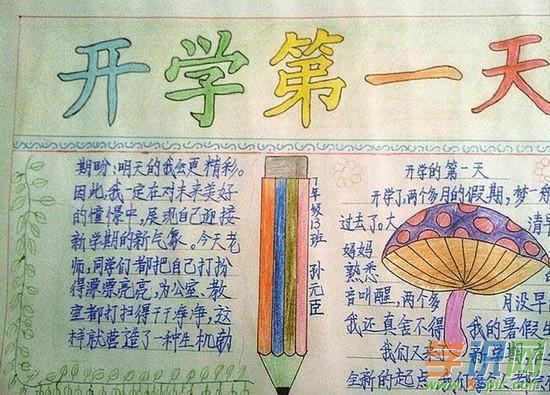 开学第一天
期盼、明天的我会更精彩。
因此,我一定在对未来美好
的憧憬中,展现自己迎接
新学期的新气象。今天老
师,同学们都把自己打扮
得漂漂亮亮,办公室、教
室都打扫得干干净净,这
样就营造了一种生机勃
7年级13班 孙元臣
开学的第一天
开学了,两个多月的假期,梦一般
过去了。大 清
妈妈
熟悉
音叫醒,两个多 月没早
我还真舍不得 我的暑假生
我们又
全新的起点
学识网